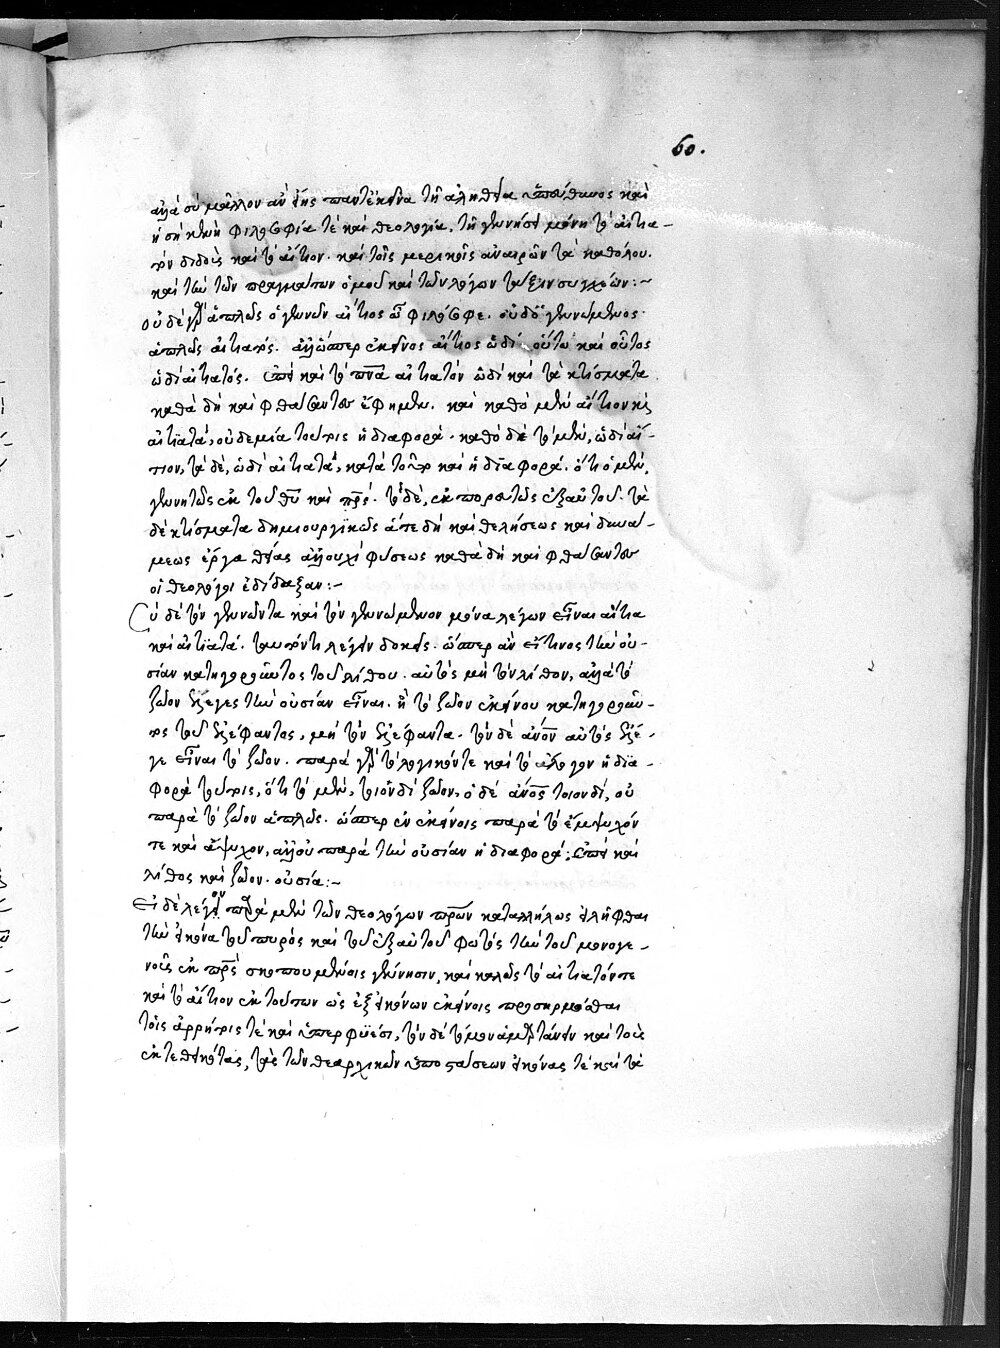 60.
ἀλλὰ σὺ μᾶλλον ἂν εἴης παντέκεινα τῇ ἀληθείᾳ ἀπείθανος καὶ
ἡ σὴ καινὴ φιλοσοφία τὲ καὶ θεολογία, τῇ γεννήσει μόνῃ τὸ αἰτια-
τὸν διδοῖς καὶ τὸ αἴτιον. καὶ τοῖς μερικοῖς ἀναιρῶν τὰ καθόλου.
καὶ τὴν τῶν πραγμάτων ὁμοῦ καὶ τῶν λόγων τάξιν συγχέων:~
οὐδὲ γὰρ ἁπλῶς ὁ γεννῶν αἴτιος ὦ φιλόσοφε. οὐδ' ὁ γεννώμενος
ἁπλῶς αἰτιατός. ἀλλ' ὥσπερ ἐκεῖνος αἴτιος ὡδί, οὕτω καὶ οὗτος
ὡδὶ αἰτιατός. ἐπεὶ καὶ τὸ πνα αἰτιατὸν ὡδὶ καὶ τὰ κτίσματα
καθὰ δὴ καὶ φθάσαντες ἔφημεν. καὶ καθὸ μὲν αἴτιον καὶ
αἰτιατά, οὐδεμία τούτοις ἡ διαφορά. καθὸ δὲ τὸ μὲν, ὡδὶ αἴ-
τιον, τὰ δὲ, ὡδὶ αἰτιατά, κατὰ τοῦτο καὶ ἡ διαφορά. ὅτι ὁ μὲν,
γεννητῶς ἐκ τοῦ θυ καὶ πρς. τὸ δὲ, ἐκπορευτῶς ἐξ αὐτοῦ. τὰ
δὲ κτίσματα δημιουργικῶς ἅτε δὴ καὶ θελήσεως καὶ δυνά-
μεως ἔργα θείας ἀλλ' οὐχὶ φύσεως καθὰ δὴ καὶ φθάσαντες
οἱ θεολόγοι ἐδίδαξαν:~
Σὺ δὲ τὸν γεννῶντα καὶ τὸν γεννώμενον μόνα λέγων εἶναι αἴτια
καὶ αἰτιατὰ. ταυτόν τι λέγειν δοκεῖς. ὥσπερ ἂν εἴ τινος τὴν οὐ-
σίαν κατηγοροῦντος τοῦ λίθου. αὐτὸς μὴ τὸν λίθον, ἀλλὰ τὸ
ζῶον ἔλεγες τὴν οὐσίαν εἶναι. ἢ τὸ ζῶον ἐκείνου κατηγοροῦν-
τος τοῦ ἐλέφαντος, μὴ τὸν ἐλέφαντα. τὸν δὲ ανον αὐτὸς ἔλε-
γε εἶναι τὸ ζῶον. παρὰ γὰρ τὸ λογικόν τε καὶ τὸ ἄλογον ἡ δια-
φορὰ τούτοις, ὅτι τὸ μὲν, τοιονδὶ ζῶον, ὁ δὲ ανος τοιονδί, οὐ
παρὰ τὸ ζῶον ἁπλῶς. ὥσπερ ἐν ἐκείνοις παρὰ τὸ ἔμψυχόν
τε καὶ ἄψυχον, ἀλλ' οὐ παρὰ τὴν οὐσίαν ἡ διαφορά; ἐπεὶ καὶ
λίθος καὶ ζῶον. οὐσία:~
Εἰ δὲ λέγειν παρὰ μὲν τῶν θεολόγων πρων καταλλήλως εἰλῆφθαι
τὴν εἰκόνα τοῦ πυρὸς καὶ τοῦ ἐξ αὐτοῦ φωτὸς τὴν τοῦ μονογε-
νοῦς ἐκ πρς σκοπουμένοις γέννησιν, καὶ καλῶς τὸ αἰτιατόν τε
καὶ τὸ αἴτιον ἐκ τούτων ὡς ἐξ εἰκόνων ἐκείνοις προσηρμόσθαι
τοῖς ἀρρήτοις τὲ καὶ ὑπερφυέσι, τὸν δὲ
ἐκτεθεικότας, τὰς τῶν θεαρχικῶν ὑποστάσεων εἰκόνας τὲ καὶ τὰ